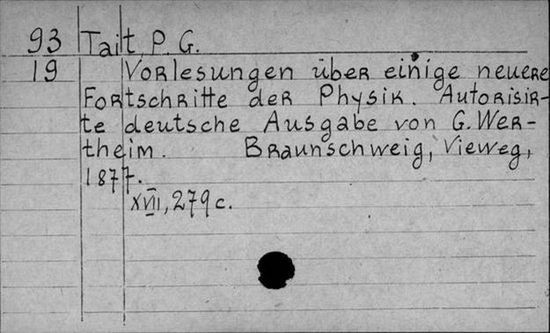 93 Tait, P. G.
19 Vorlesungen über einige neuere
Fortschritte der Physik. Autorisir-
te deutsche Ausgabe von G. Wer-
theim. Braunschweig, Vieweg,
1877.
XVII, 279 c.